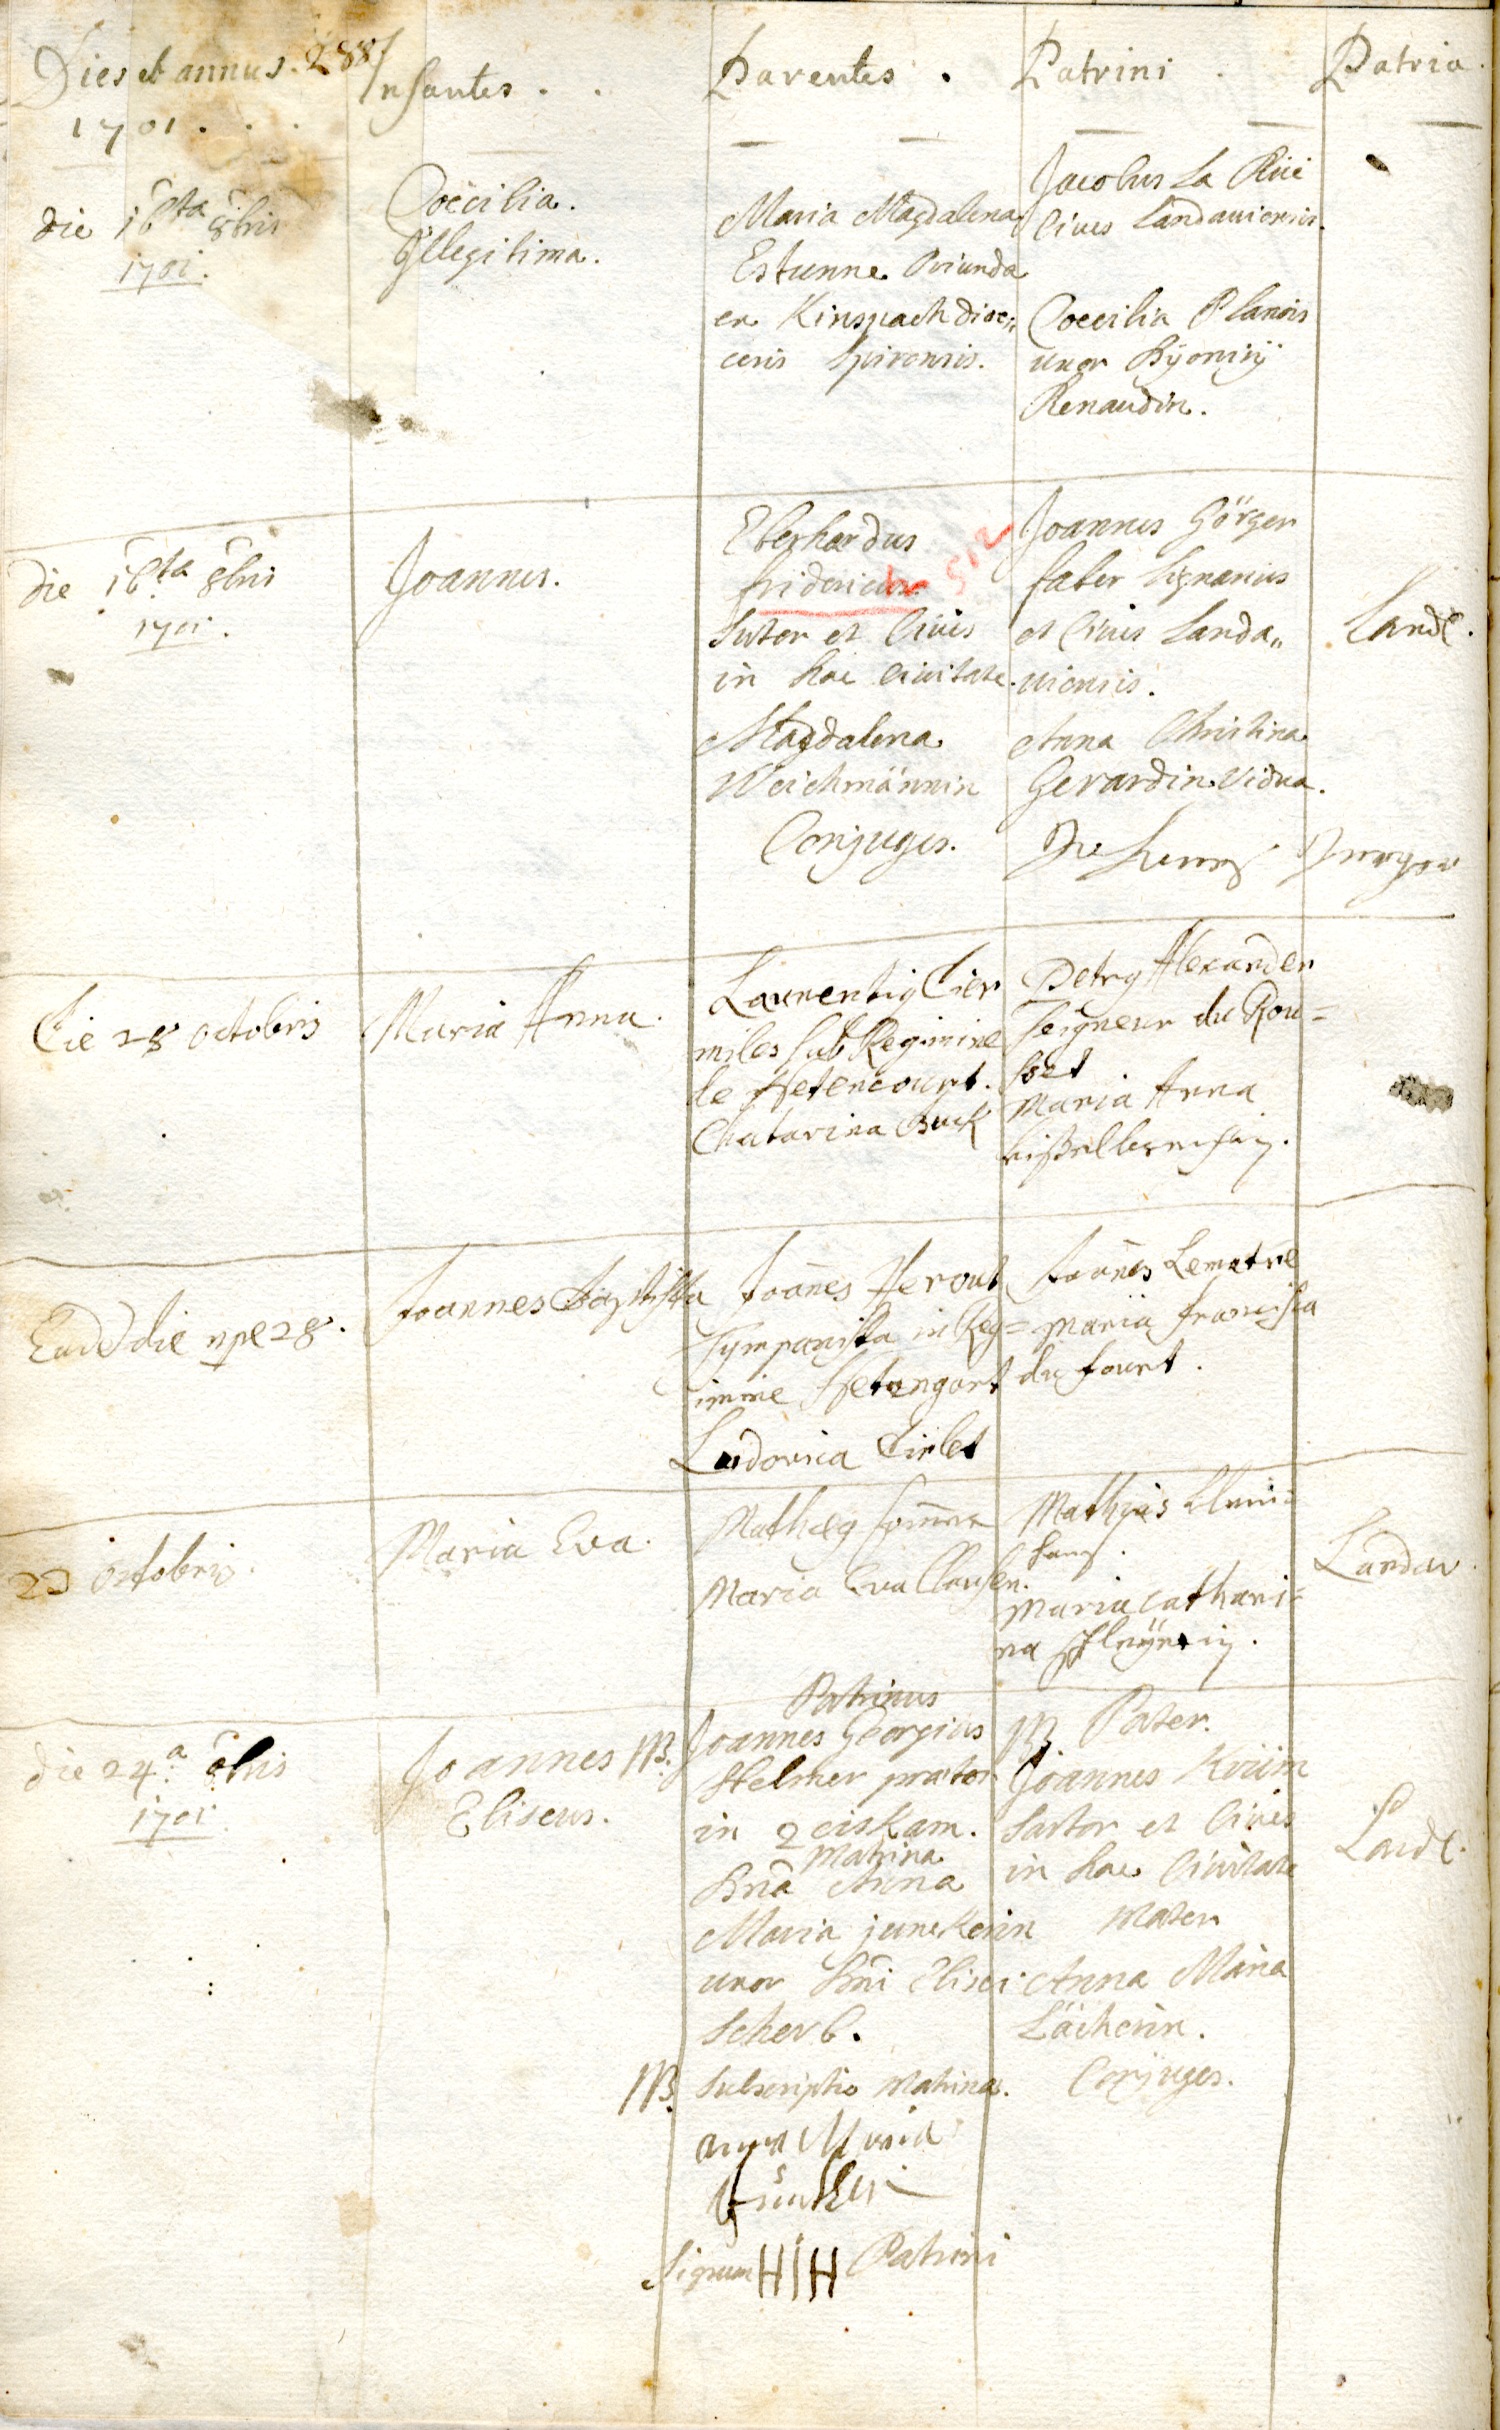 288
Dies et annus. Infantes. Parentes. Patrini. Patria.
1701.
die 16ta 8bris
1701.
Coecilia.
Illegitima.
Maria Magdalena
Estunne Oriunda
ex Kinspach dioe„
cesis Spirensis.
Jacobus La Rue
Civis Landaviensis.
Coecilia Planois
uxor Dyonisÿ
Renaudin.
die 16ta 8bris
1701.
Joannes.
Eberhardus
fridericus 512
Sutor et Civis
in hac civitate.
Magdalena
Weichmännin
Conjuges.
Joannes Görger
faber lignarius
et Civis Landa„
viensis.
Anna Christina
Gerardin Vidua.
Land.
die 28 octobris
Maria Anna.
Laurentig Cier
miles sub Regimine
de Hetencourt.
Chatarina Buck
Petrg Alexander
Seigneur du Rou=
foet
Maria Anna
Eade die npe 28.
Joannes Baptista
Joānes Herout
Tympanista in Reg=
imine Hetangort
Ludovica Cirlet
Joānes Lematre
Maria francisca
du fourt.
octobris.
Maria Eva.
Matheg
Maria Eva Clausen.
Mathias
Maria Cathari=
na
Landav.
die 24a 8bris
1701.
Joannes
Eliseus.
NB.
Patrinus
Joannes Georgius
Helmer praetor
in
Matrina
Dna Anna
Maria junckerin
uxor Dni Elisei
Scherb.
NB.
Subscriptio Matrinae.
anna Maria
Signum HIH Patrini
NB Pater.
Joannes Kriim
Sartor et Civis
in hac Civitate
Mater
Anna Maria
Läicherin.
Conjuges.
Land.